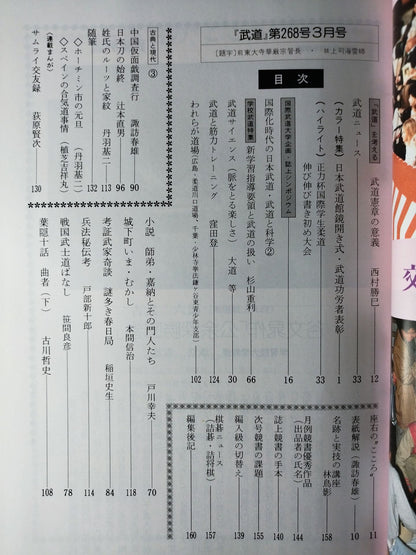 『武道』第268号3月号
〔題字〕前東大寺華厳宗管長・故上司海雲師
目次
「武道」を考える
武道憲章の意義 西村勝巳 12
武道ニュース 33
〈カラー特集〉日本武道館鏡開き式・武道功労者表彰 1
〈ハイライト〉正力杯国際学生柔道 33
伸び伸び書き初め大会 33
国際武道大学企画・誌上シンポジウム
国際化時代の日本武道・武道と科学② 16
学校武道特集
新学習指導要領と武道の扱い 杉山重利 66
武道サイエンス(脈をとる楽しさ) 大道等 30
武道と筋力トレーニング 窪田登 124
われらが道場(広島・柔道川口道場、千葉・少林寺拳法鎌ケ谷東青少年支部) 102
古典と現代③
中国仮面戯調査行 諏訪春雄 90
日本刀の始終 辻本直男 96
姓氏のルーツと家紋 丹羽基二 113
随筆 132
◇ホーチミン市の元旦 (丹羽基二)
◇スペインの合気道事情 (植芝吉祥丸)
〈連載まんが〉
サムライ交友録 荻原賢次 130
小説 師弟・嘉納とその門人たち 戸川幸夫 70
城下町いま・むかし 本間信治 118
考証武家奇談 謎多き春日局 稲垣史生 84
兵法秘伝考 戸部新十郎 114
戦国武士道ばなし 笹間良彦 78
葉隠十話 曲者(下) 古川哲史 108
座右の“こころ” 11
表紙解説(諏訪春雄) 10
名跡と実技の講座 林島影 158
月例競書優秀作品
(出品者の氏名) 144
誌上競書の手本 140
次号競書の課題 155
編入級の切替え 139
棋碁ニュース
(詰碁・詰将棋) 157
編集後記 160